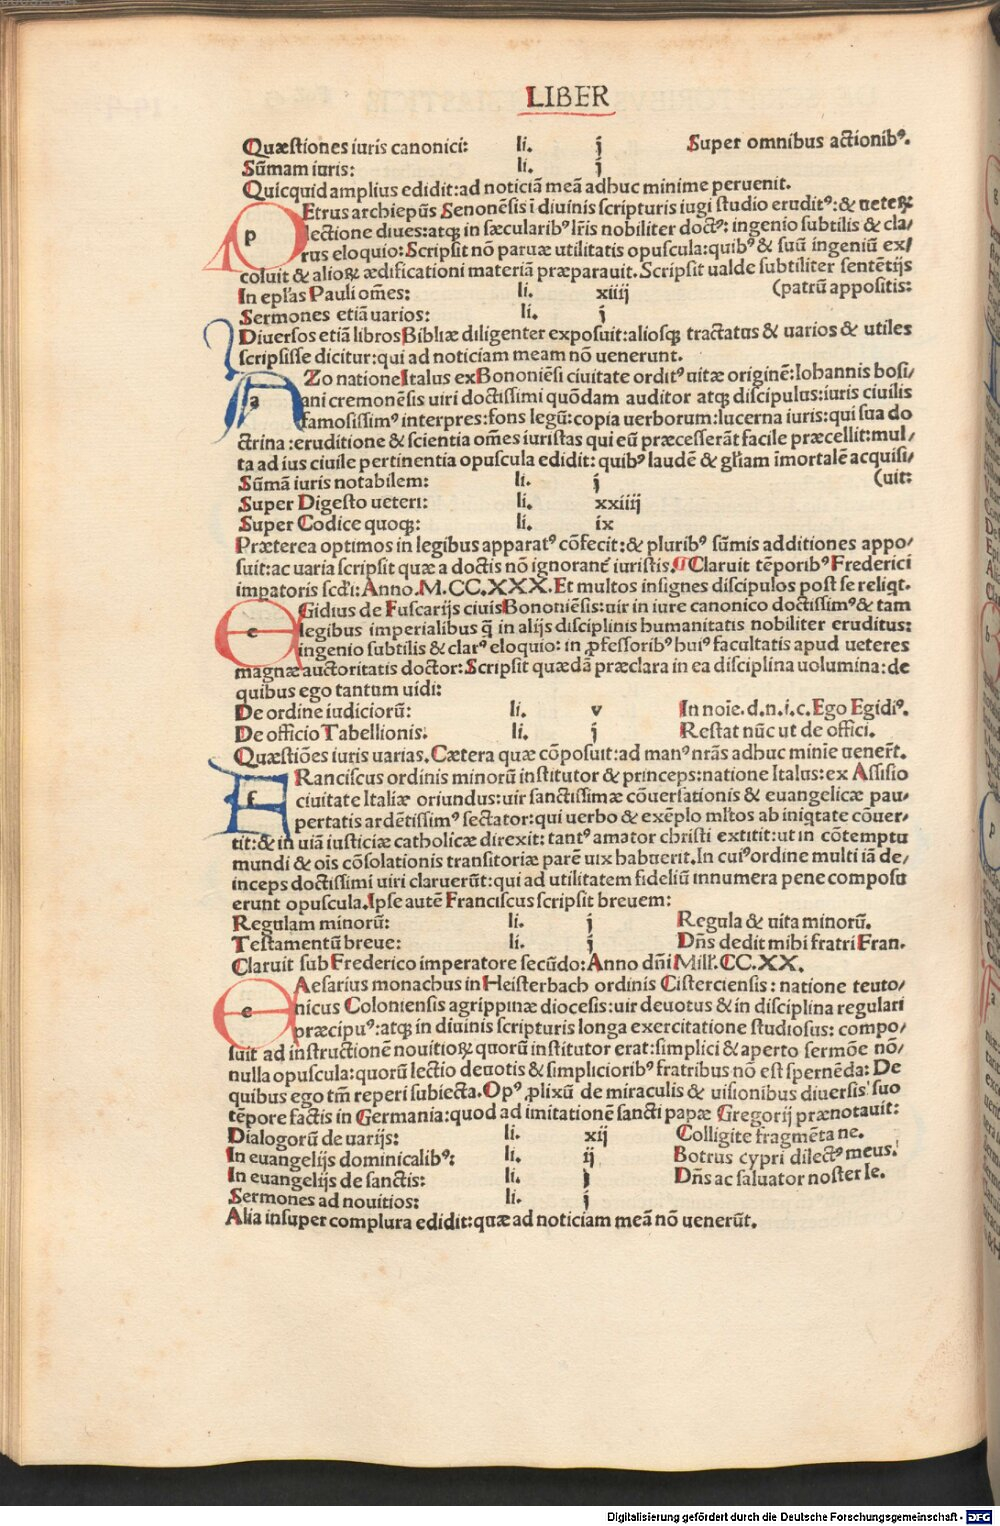 LIBER
Quæstiones iuris canonici: li. j Super omnibus actionibꝰ.
Sūmam iuris: li. j
Quicquid amplius edidit: ad noticiā meā adhuc minime peruenit.
PEtrus archiepūs Senonēsis ī diuinis scripturis iugi studio eruditꝰ: & ueteꝝ
lectione diues: atqꝫ in sæcularibꝰ lr̄is nobiliter doctꝰ: ingenio subtilis & cla/
rus eloquio: Scripsit nō paruæ utilitatis opuscula: quibꝰ & suū ingeniū ex/
coluit & alioꝝ ædificationi materiā præparauit. Scripsit ualde subtiliter sentētijs
In epl̄as Pauli om̄es: li. xiiij (patrū appositis:
Sermones etiā uarios: li. j
Diuersos etiā libros Bibliæ diligenter exposuit: aliosqꝫ tractatus & uarios & utiles
scripsisse dicitur: qui ad noticiam meam nō uenerunt.
AZo natione Italus ex Bononiēsi ciuitate orditꝰ uitæ originē: Iohannis bosi/
ani cremonēsis uiri doctissimi quōdam auditor atqꝫ discipulus: iuris ciuilis
famosissimꝰ interpres: fons legū: copia uerborum: lucerna iuris: qui sua do
ctrina: eruditione & scientia om̄es iuristas qui eū præcesserāt facile præcellit: mul/
ta ad ius ciuile pertinentia opuscula edidit: quibꝰ laudē & gl̄iam īmortalē acquisi/
Sūmā iuris notabilem: li. j (uit:
Super Digesto ueteri: li. xxiiij
Super Codice quoqꝫ: li. ix
Præterea optimos in legibus apparatꝰ cōfecit: & pluribꝰ sūmis additiones appo/
suit: ac uaria scripsit quæ a doctis nō ignorant̄ iuristis. ¶ Claruit tēporibꝰ Frederici
impatoris scd̄i: Anno. M. CC. XXX. Et multos insignes discipulos post se reliqt.
EGidius de Fuscarijs ciuis Bononiēsis: uir in iure canonico doctissimꝰ & tam
legibus imperialibus q̄ in alijs disciplinis humanitatis nobiliter eruditus:
ingenio subtilis & clarꝰ eloquio: in ꝓfessoribꝰ huiꝰ facultatis apud ueteres
magnæ auctoritatis doctor: Scripsit quædā præclara in ea disciplina uolumina: de
quibus ego tantum uidi:
De ordine iudiciorū: li. v In noie. d. n. i. c. Ego Egidiꝰ.
De officio Tabellionis: li. j Restat nūc ut de offici.
Quæstiōes iuris uarias. Cætera quæ cōposuit: ad manꝰ nr̄as adhuc minie uener̄t.
FRanciscus ordinis minorū institutor & princeps: natione Italus: ex Assisio
ciuitate Italiæ oriundus: uir sanctissimæ cōuersationis & euangelicæ pau/
pertatis ardētissimꝰ sectator: qui uerbo & exēplo ml̄tos ab iniqtate cōuer/
tit: & in uiā iusticiæ catholicæ direxit: tantꝰ amator christi extitit: ut in cōtemptu
mundi & ois cōsolationis transitoriæ parē uix habuerit. In cuiꝰ ordine multi iā de/
inceps doctissimi uiri claruerūt: qui ad utilitatem fideliū innumera pene composu
erunt opuscula. Ipse autē Franciscus scripsit breuem:
Regulam minorū: li. j Regula & uita minorū.
Testamentū breue: li. j Dn̄s dedit mihi fratri Fran.
Claruit sub Frederico imperatore secūdo: Anno dn̄i Mill̄. CC. XX.
CAesarius monachus in Heisterbach ordinis Cisterciensis: natione teuto/
nicus Coloniensis agrippinæ diocesis: uir deuotus & in disciplina regulari
præcipuꝰ: atqꝫ in diuinis scripturis longa exercitatione studiosus: compo/
suit ad instructionē nouitioꝝ quorū institutor erat: simplici & aperto sermōe nō/
nulla opuscula: quorū lectio deuotis & simplicioribꝰ fratribus nō est spernēda: De
quibus ego tm̄ reperi subiecta. Opꝰ ꝓlixū de miraculis & uisionibus diuersis suo
tēpore factis in Germania: quod ad imitationē sancti papæ Gregorij prænotauit:
Dialogorū de uarijs: li. xij Colligite fragmēta ne.
In euangelijs dominicalibꝰ: li. ij Botrus cypri dilectꝰ meus.
In euangelijs de sanctis: li. j Dn̄s ac saluator noster Ie.
Sermones ad nouitios: li. j
Alia insuper complura edidit: quæ ad noticiam meā nō uenerūt.
Digitalisierung gefördert durch die Deutsche Forschungsgemeinschaft - DFG